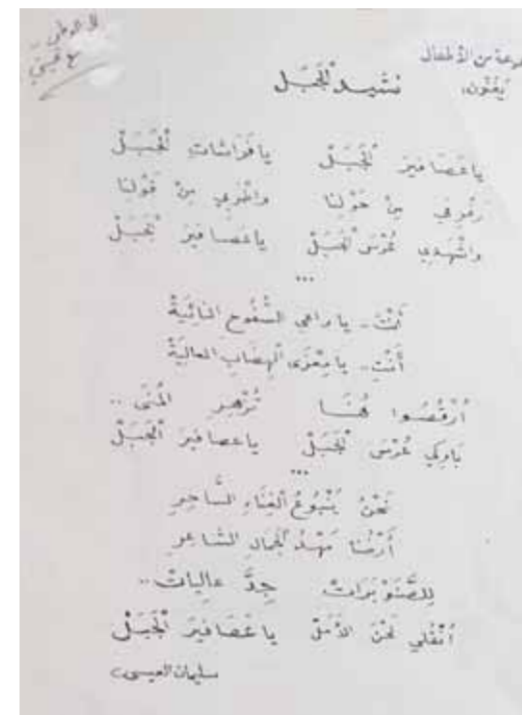 من الأطفال
يغنون:
نشيد الجَبَلْ
يا عَصَافيرَ الجَبَلْ يا فَرَاشاتِ الجَبَلْ
رَفْرِفي مِنْ حَوْلِنا وامْرَحي مِنْ قَوْلِنا
واشْهَدي عُرْسَ الجَبَلْ يا عصافيرَ الجَبَلْ
...
أنتَ.. يا راعي السُّفُوحِ النائيَةْ
أنتِ.. يا مِعْزَى الهِضَابِ العاليَةْ
اُرْقُصُوا هُنَا تُزْهِرِ المُنَى..
بَارِكي عُرْسَ الجَبَلْ يا عصافيرَ الجَبَلْ
...
نَحْنُ يَنْبُوعُ الغِنَاءِ السَّاحِرِ
أَرْضُنا مَهْدُ الجَمالِ الشاعرِ
لِلصَّنَوْبَرَاتْ جِدَّ عالِياتْ..
اُنْقُلي نَحْنُ الأمَلْ يا عَصَافيرَ الجَبَلْ
سليمان العيسى